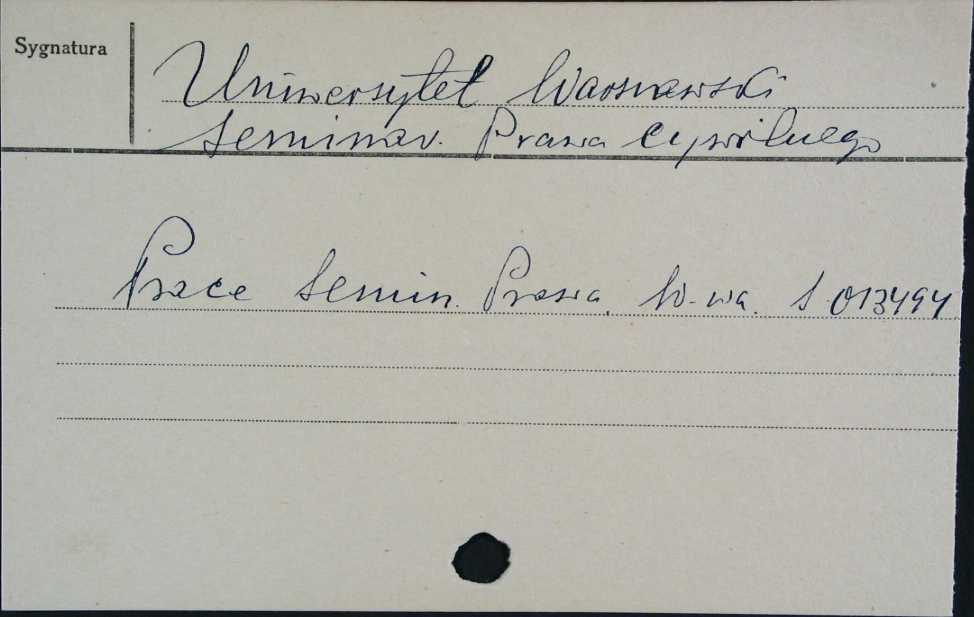 Sygnatura
Uniwersytet Warszawski
Seminar. Prawa Cywilnego
Prace Semin. Prawa. W-wa. S 013494